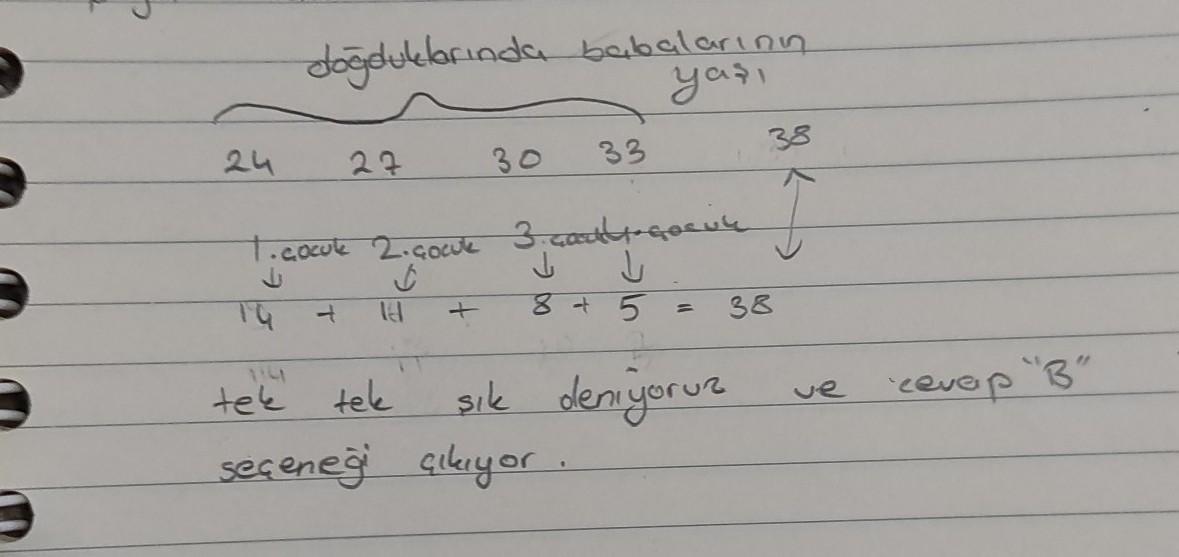 doğduklarında babalarının
yaşı
24 27 30 33 38
1.çocuk 2.çocuk 3.çocuk 4.çocuk
14 + 11 + 8 + 5 = 38
tek tek şık deniyoruz ve cevap "B"
seçeneği çıkıyor.